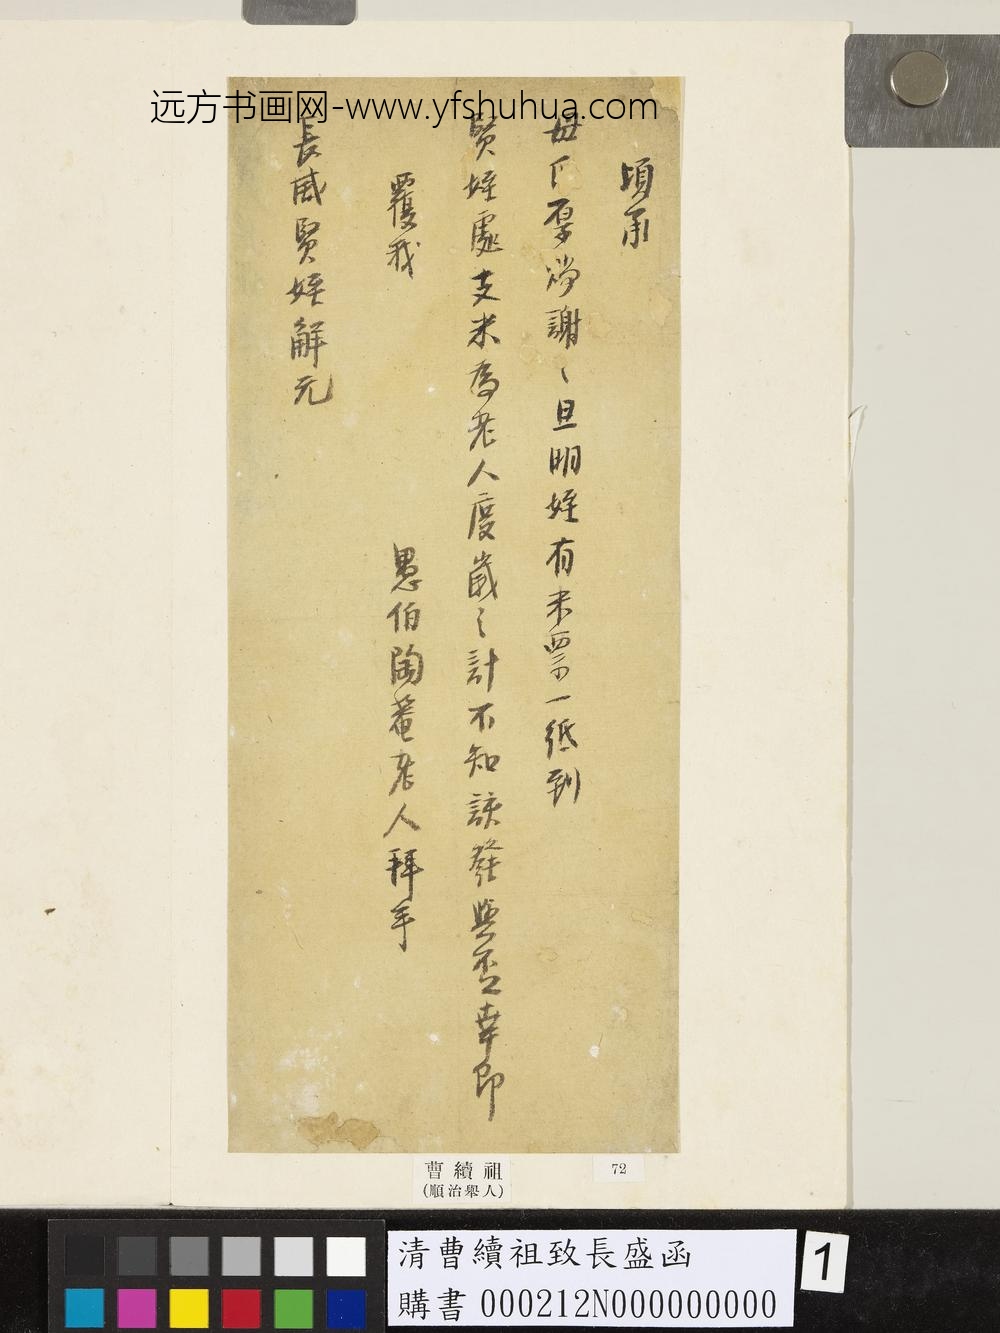 远方书画网-www.yfshuhua.com
頃承
母下厚
謝〻旦明姪有米票一紙到
賢姪處支米為老人度歲之計不知該發與否幸即
覆我
愚伯陶菴老人拜手
長盛賢姪解元
曹續祖
(順治舉人)
72
清曹續祖致長盛函
購書 000212N000000000
1